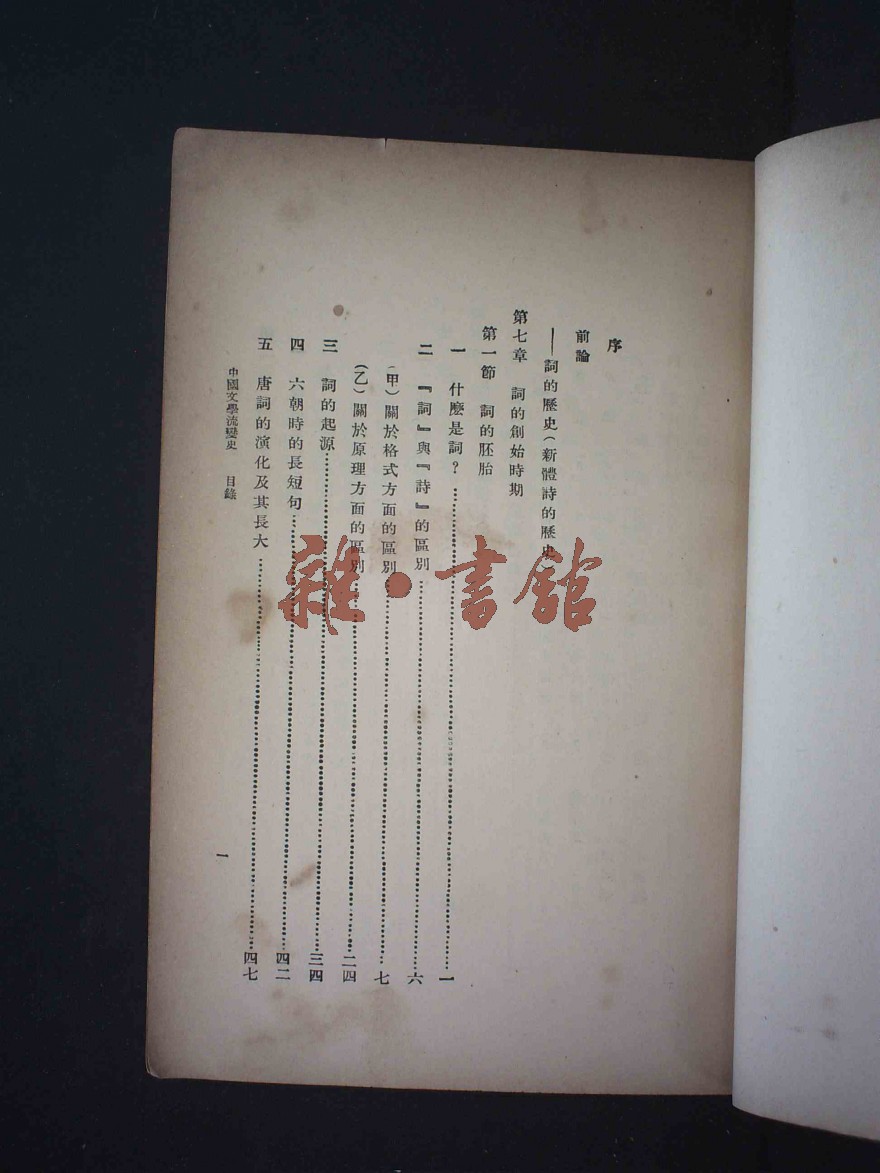 序
前論
——詞的歷史(新體詩的歷史)
第七章 詞的創始時期
第一節 詞的胚胎
一 什麽是詞?…………一
二 『詞』與『詩』的區別…………六
(甲)關於格式方面的區別…………七
(乙)關於原理方面的區別…………二四
三 詞的起源…………三四
四 六朝時的長短句…………四二
五 唐詞的演化及其長大…………四七
中國文學流變史 目錄
一
雜·書館